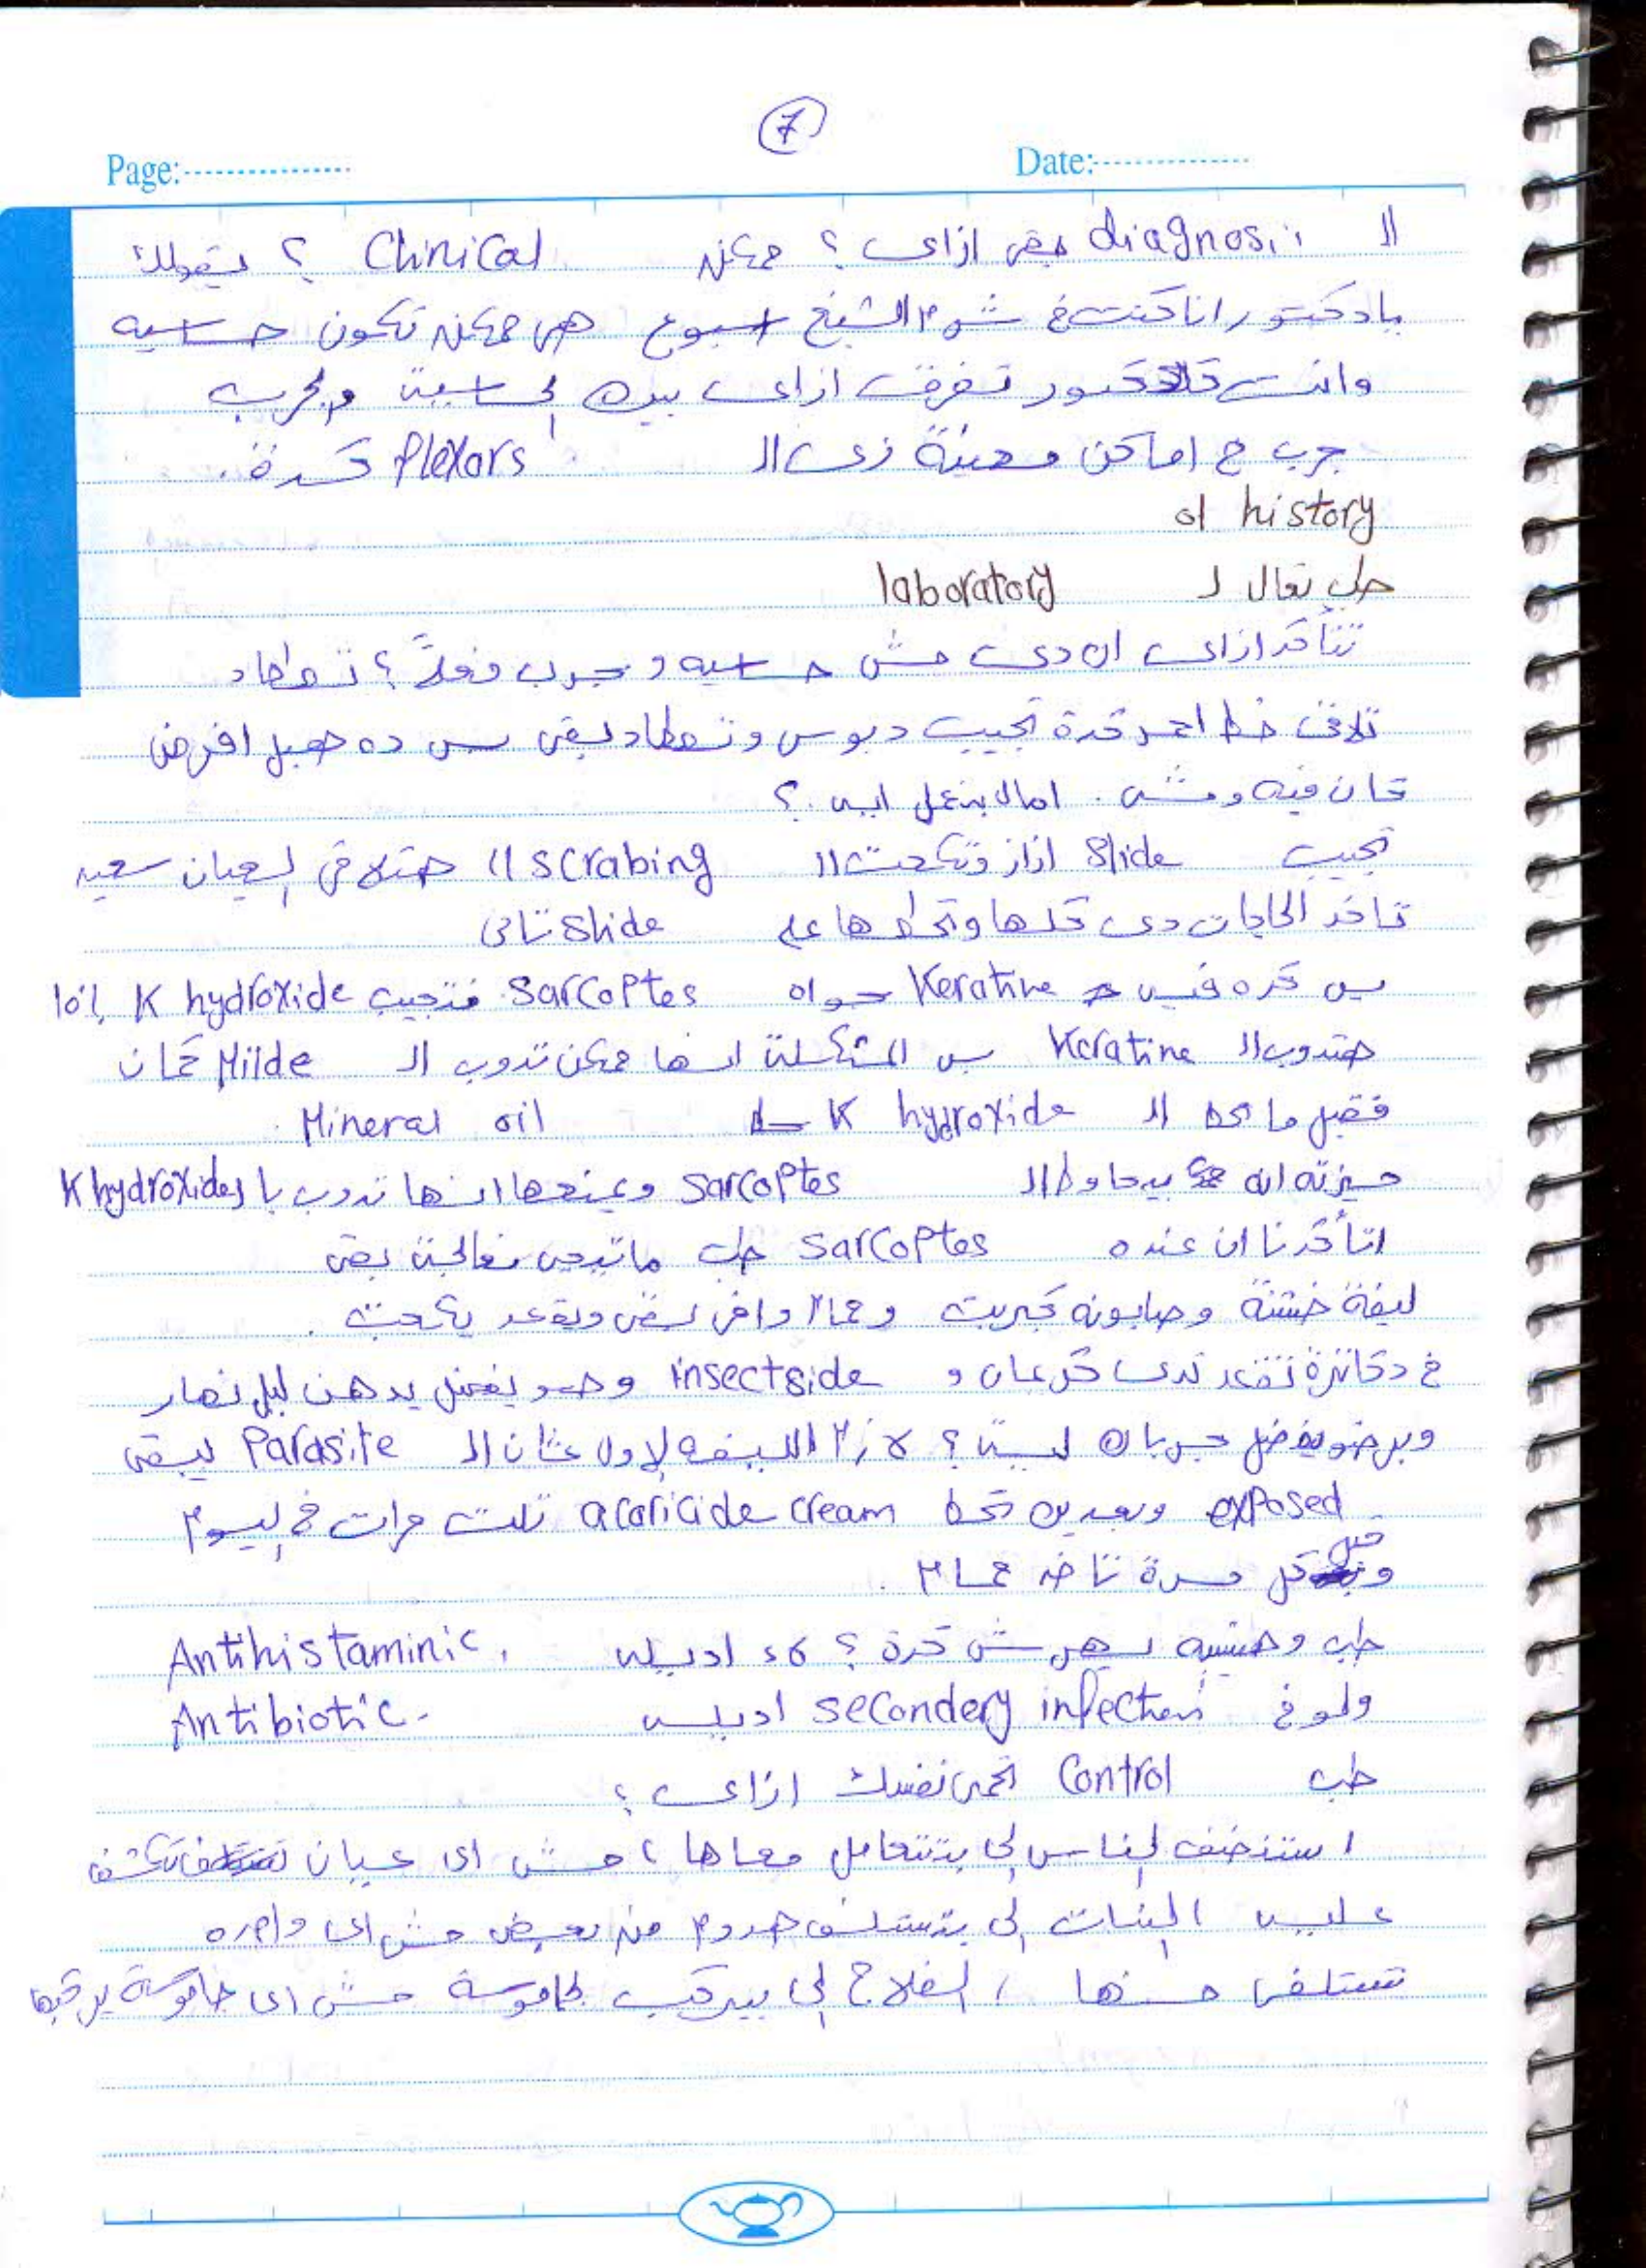 7
Page: Date:
ال diagnosis بقى ازاى ؟ ممكن Clinical ؟ يقولك
يا دكتور انا كنت ف شرم الشيخ اسبوع هى ممكن تكون حساسيه
وانت كدكتور تفرق ازاى بين الحساسية والجرب
جرب ف اماكن معينة زى ال flexors كدة .
ol history
طب تعال ل laboratory
تتأكد ازاى ان دى مش حساسيه وجرب فعلاً ؟
تلاقى خط احمر كدة تجيب دبوس بقى بس ده هبل افرض
كان فيه ومشى . امال بنعمل ايه ؟
تجيب Slide ازاز وتكحت ال scrabing هتلاقى العيان سعيد
تاخد الحاجات دى كلها وتحطها على slide تانى
بس كده فيه Keratine جواه Sarcoptes فتجيب K hydroxide 10%
هتدوب ال Keratine بس المشكلة انها ممكن تدوب ال Miide كمان
فقبل ما تحط ال K hydroxide حط Mineral oil
ميزته انه بيحاوط ال sarcoptes ويمنعها انها تدوب با K hydroxides
اتأكدنا ان عنده Sarcoptes طب ماتيجى نعالجه بقى
ليفة خشنة وصابونه كبريت وحمام دافى بقى ويقعد يكحت .
ف دكاترة تقعد تدى كريمات و insectside وهو يفضل يدهن ليل نهار
وبرضو يفضل جربان ليه ؟ لازم الليفه الاول عشان ال Parasite يبقى
exposed وبعدين تحط acaricide cream تلت مرات ف اليوم
وقبل كل مرة تاخد حمام .
طب وهنسيبه يهرش كدة ؟ لاء اديله Antihistaminic .
ولو ف secondery infection اديله Antibiotic .
طب Control تحمى نفسك ازاى ؟
استنضف الناس الى بتتعامل معاها ، مش اى عيان تكشف
عليه البنات الى بتستلف هدوم من بعض مش اى واحده
تستلفى منها ، الفلاح الى بيركب الجاموسة مش اى جاموسة يركبها